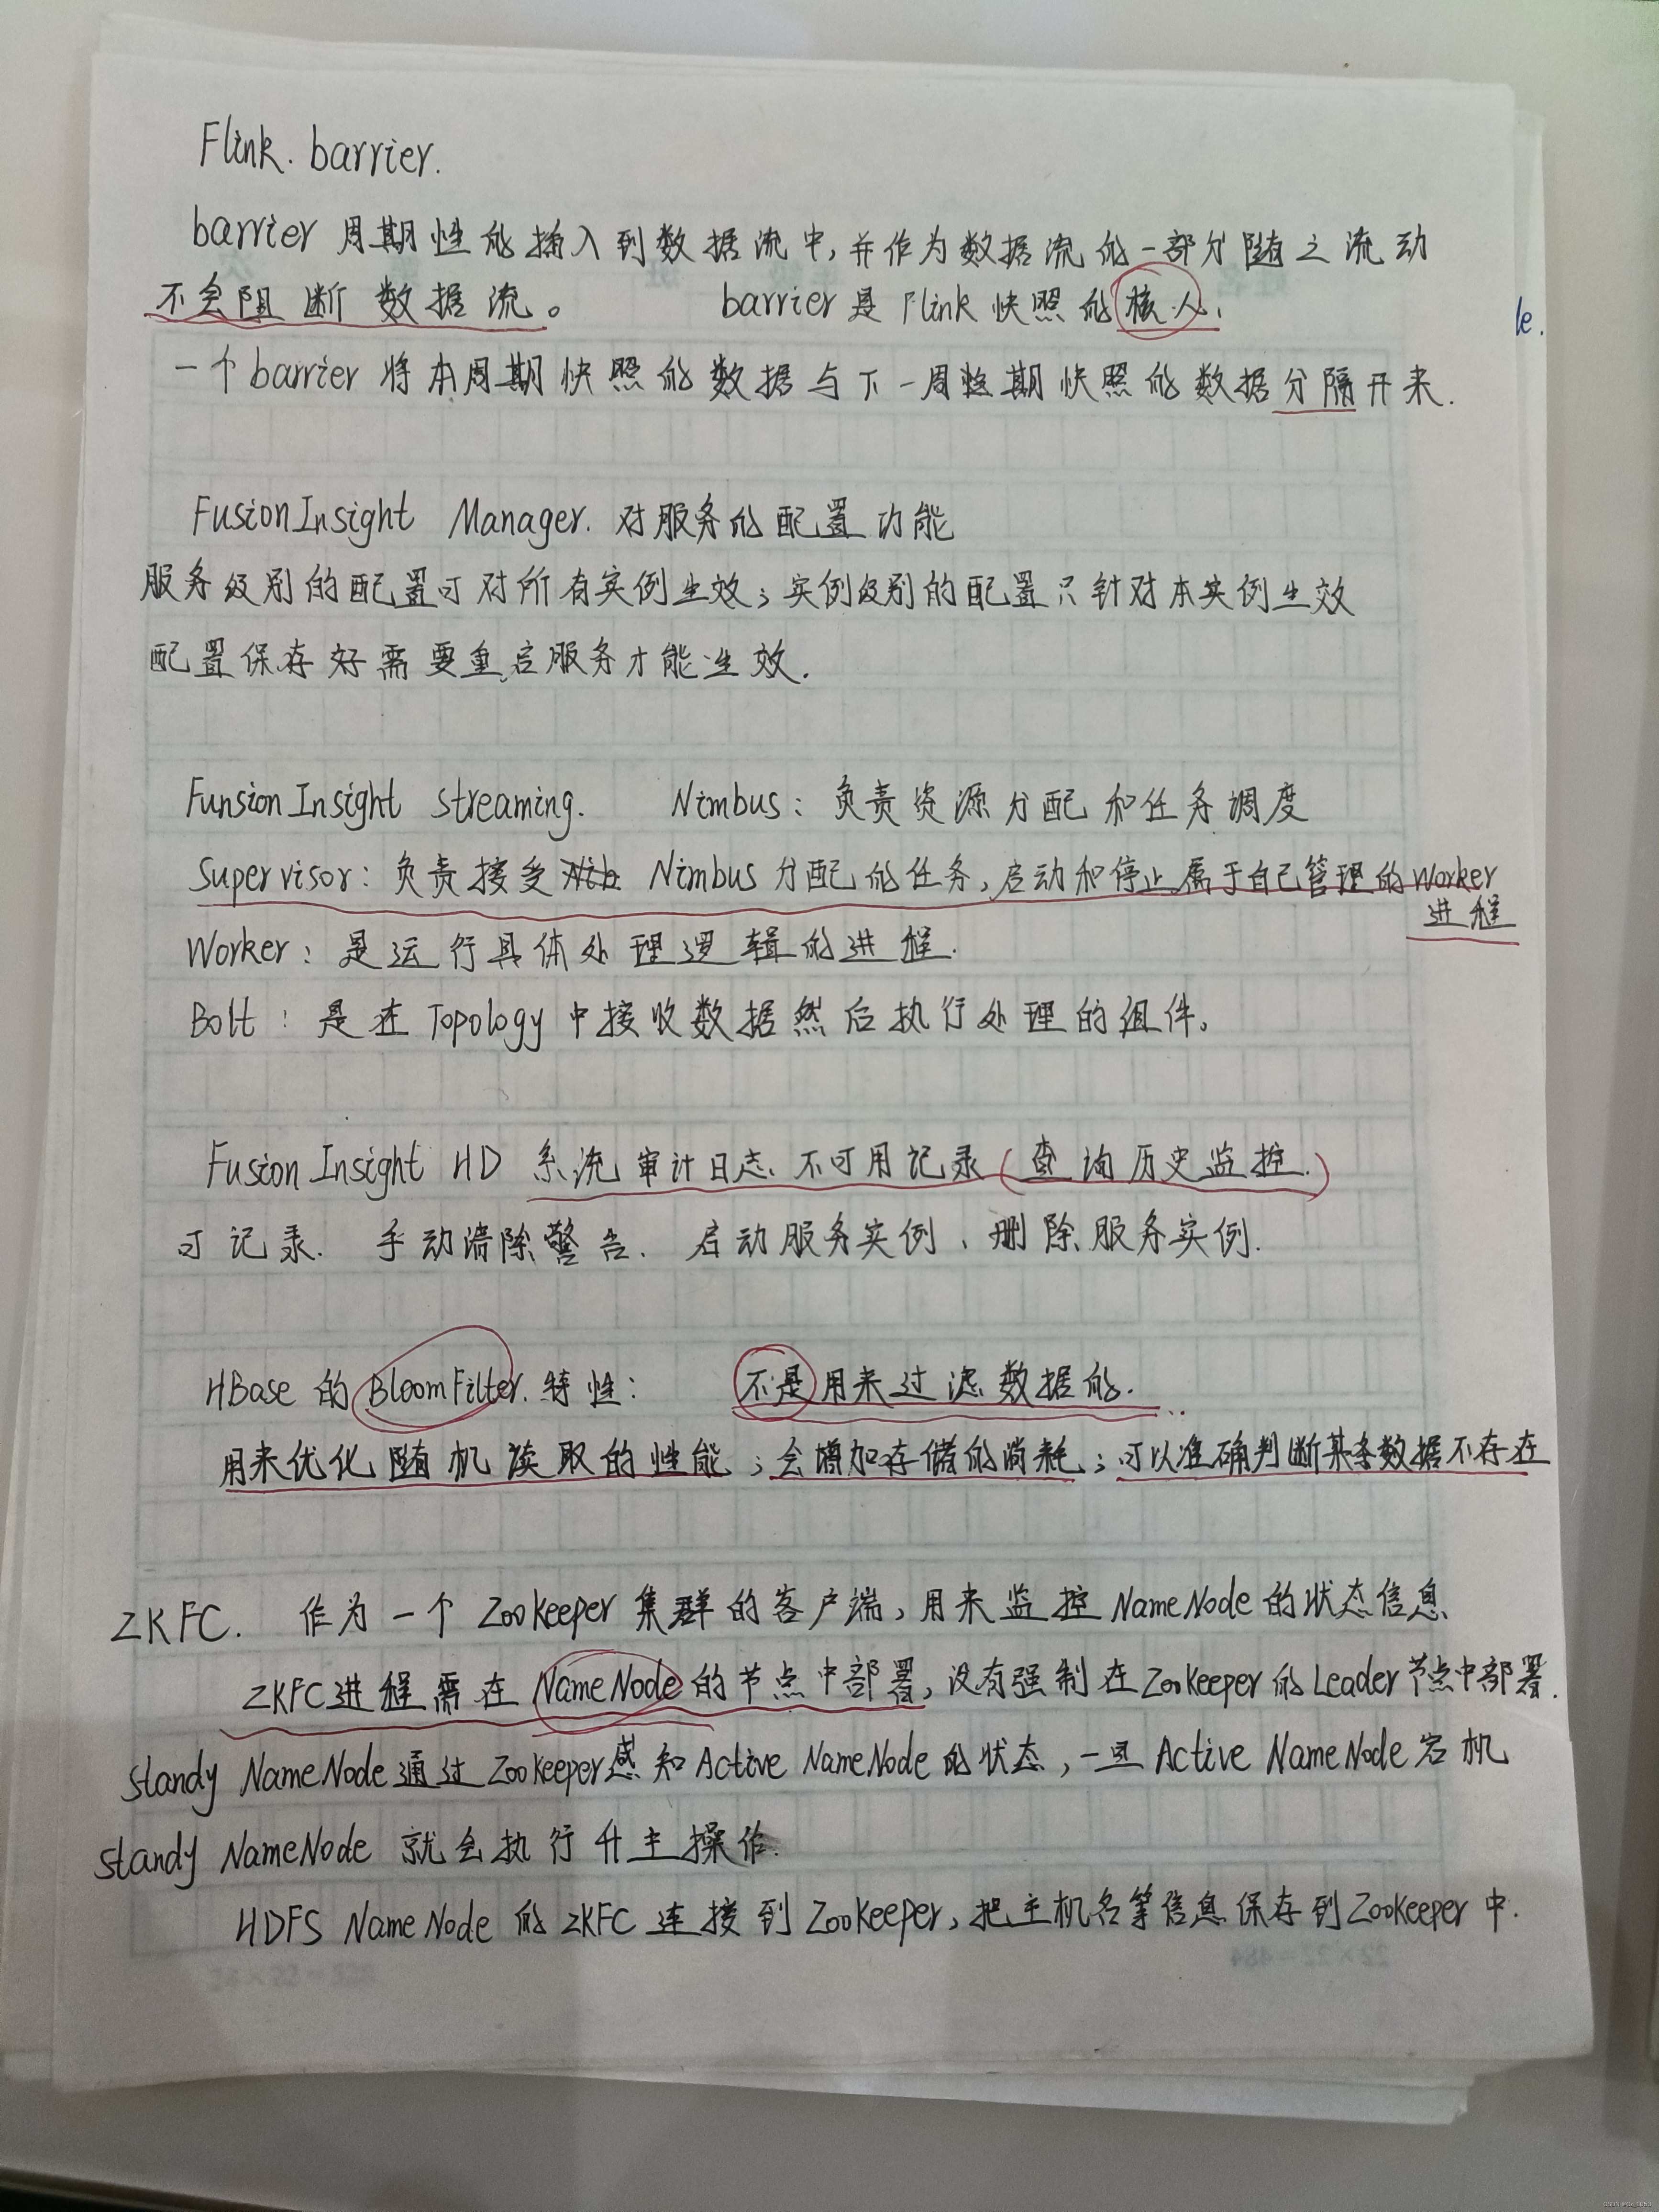 Flink. barrier.
barrier 周期性的插入到数据流中,并作为数据流的一部分随之流动
不会阻断数据流。 barrier是Flink快照的核心.
一个barrier将本周期快照的数据与下一周期快照的数据分隔开来.
le.
FusionInsight Manager. 对服务的配置功能
服务级别的配置可对所有实例生效;实例级别的配置只针对本实例生效
配置保存好需要重启服务才能生效.
FunsionInsight streaming. Nimbus: 负责资源分配和任务调度
Supervisor: 负责接受 Nimbus分配的任务,启动和停止属于自己管理的Worker
进程
Worker: 是运行具体处理逻辑的进程.
Bolt: 是在Topology中接收数据然后执行处理的组件。
FusionInsight HD 系统审计日志不可用记录(查询历史监控.)
可记录. 手动清除警告. 启动服务实例、删除服务实例.
HBase的BloomFilter.特性: 不是用来过滤数据的.
用来优化随机读取的性能;会增加存储的消耗;可以准确判断某条数据不存在
ZKFC. 作为一个Zookeeper集群的客户端,用来监控NameNode的状态信息
ZKFC进程需在NameNode的节点中部署,没有强制在Zookeeper的Leader节点中部署.
standy NameNode通过Zookeeper感知Active NameNode的状态,一旦Active NameNode宕机
standy NameNode 就会执行升主操作.
HDFS NameNode的ZKFC连接到Zookeeper,把主机名等信息保存到Zookeeper中.
22×22=484